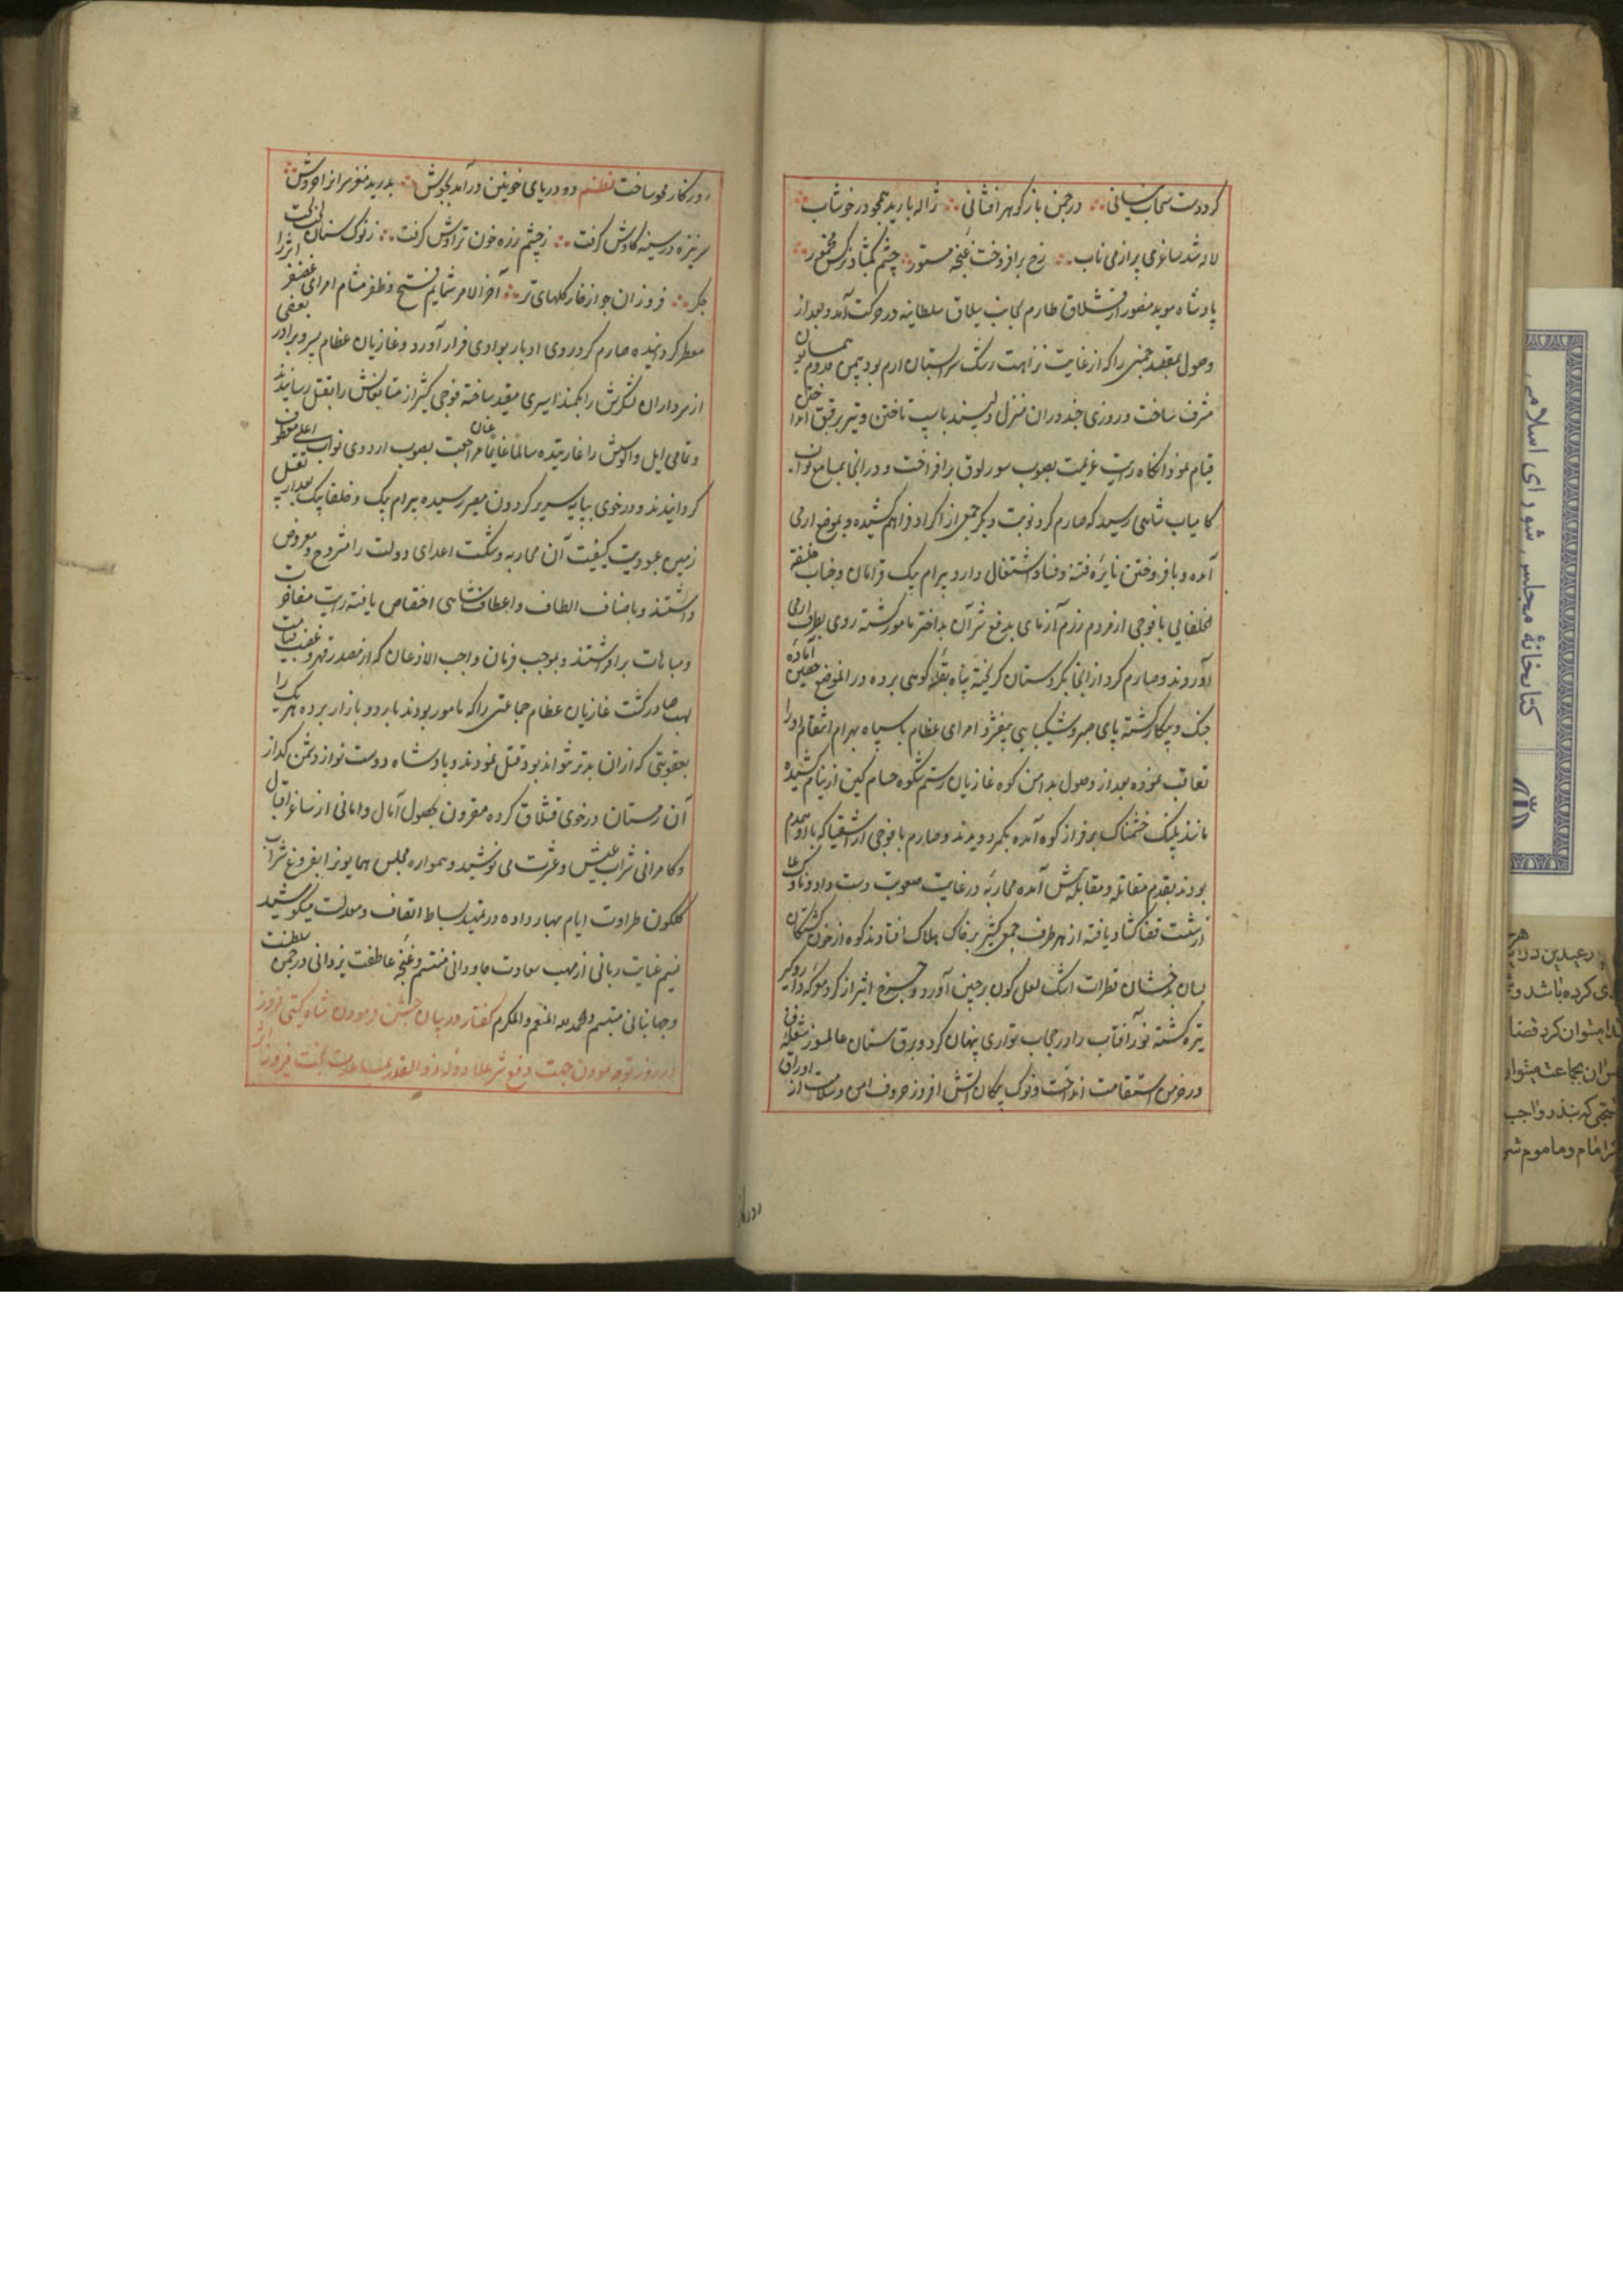 کرد دست سحاب نیسانی ∴ در چمن باز گوهر افشانی ∴ ژاله بارید همچو در خوشاب
لاله شد ساغری پر از می ناب ∴ رخ برافروخت غنچه مستور ∴ چشم بگشاد نرگس مخمور
پادشاه موید منصور از قشلاق طارم بجانب ییلاق سلطانیه در حرکت آمد و بعد از
وصول بمقصد چمنی را که از غایت نزاهت رشک سرابستان ارم بود بیمن قدوم همایون
مشرف ساخت و روزی چند دران منزل دلپسند باسب تاختن و تیر برقبق انداختن
قیام نمود آنگاه رایت عزیمت بصوب سورلوق برافراخت و در انجا بمسامع نواب
کامیاب شاهی رسید که صارم کرد نوبت دیگر جمعی از اکراد فراهم کشیده و بموضع ارمی
آمده و بافروختن نایره فتنه و فساد اشتغال دارد بیرام بیک قرامان و جناب خلیفة
الخلفایی با فوجی از مردم رزم آزمای بدفع شر آن بداختر مامور گشته روی بطرف ارمی
آوردند و صارم کرد از انجا بکردستان گریخته پناه بقله کوهی برده در انموضع حصین آماده
جنگ و پیکار گشته پای صبر و شکیبایی بیفشرد امرای عظام با سپاه بهرام انتقام او را
تعاقب نموده بعد از وصول بدامن کوه غازیان رستم شکوه حسام کین از نیام کشیده
مانند پلنگ خشمناک بر فراز کوه آمده بکمر دویدند و صارم با فوجی از اشقیا که با او همدم
بودند بقدم مقاتله و مقابله پیش آمده محاربه در غایت صعوبت دست داد و ناوک بلا
از شست قضا گشاد یافته از هر طرف جمعی کثیر بر خاک هلاک افتادند کوه از خون کشتگان
بسان بدخشان قطرات اشک لعل گون بر جبین آورد و چرخ اثیر از گرد معرکه دار و گیر
تیره گشته نور آفتاب را در حجاب تواری پنهان کرد و برق سنان عالمسوز شعله فنا
در خرمن استقامت انداخت و نوک پیکان آتش افروز حروف امن و سلامت از اوراق
روزگار
روزگار محو ساخت نظم دو دریای خونین درآمد بجوش ∴ بدرید مغز سران از خروش
سر نیزه در سینه کاوش گرفت ∴ ز چشم زره خون تراوش گرفت ∴ ز نوک سنان لخت لخت
جگر ∴ فروزان چو از خار گلهای تر ∴ آخر الامر شمایم فتح و ظفر مشام امرای غضنفر اثر را
معطر گردانیده صارم کرد روی ادبار بوادی فرار آورد و غازیان عظام پسر و برادر و بعضی
از سرداران لشکرش را بکمند اسیری مقید ساخته فوجی کثیر از متابعانش را بقتل رسانیدند
و تمامی ایل و الوسش را غارتیده سالما غانما عنان مراجعت بصوب اردوی نواب اعلی معطوف
گردانیدند و در خوی بپایه سریر گردون مصیر رسیده بیرام بیک و خلفا بیک بعد از تقبیل
زمین عبودیت کیفیت آن محاربه و شکست اعدای دولت را مشروح و معروض
داشتند و باصناف الطاف و اعطاف شاهی اختصاص یافته رایت مفاخرت
و مباهات برافراشتند و بموجب فرمان واجب الاذعان که از مصدر قهر و غضب قیامت
لهب صادر گشت غازیان عظام جماعتی را که مامور بودند باردو بازار برده هر یک را
بعقوبتی که ازان بدتر نتواند بود قتل نمودند و پادشاه دوست نواز دشمن گداز
آن زمستان در خوی قشلاق کرده مقرون بحصول آمال و امانی از ساغر اقبال
و کامرانی شراب عیش و عشرت می نوشید و همواره مجلس همایونرا بفروغ شراب
گلگون طراوت ایام بهار داده در تمهید بساط انصاف و معدلت میکوشید
نسیم عنایت ربانی از مهب سعادت جاودانی متنسم و غنچه عاطفت یزدانی در چمن سلطنت
و جهانبانی متبسم والحمد لله المنعم والمکرم گفتار در بیان جشن فرمودن شاه گیتی فروز
در روز توجه نمودن جهت دفع شر علاءدوله ذوالقدر بمساعدت بخت فیروز
کتابخانهٔ مجلس شورای اسلامی